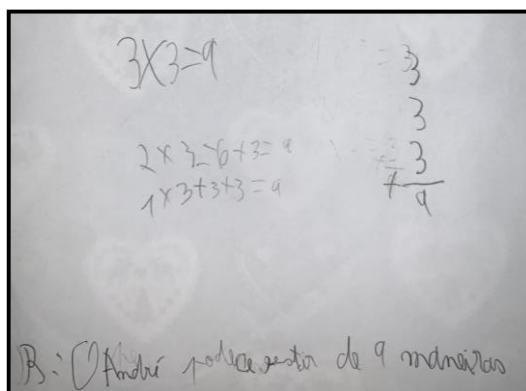 3×3=9
3
3
3
+
9
2×3=6+3=9
1×3+3+3=9
R: O André podece vestir de 9 maneiras